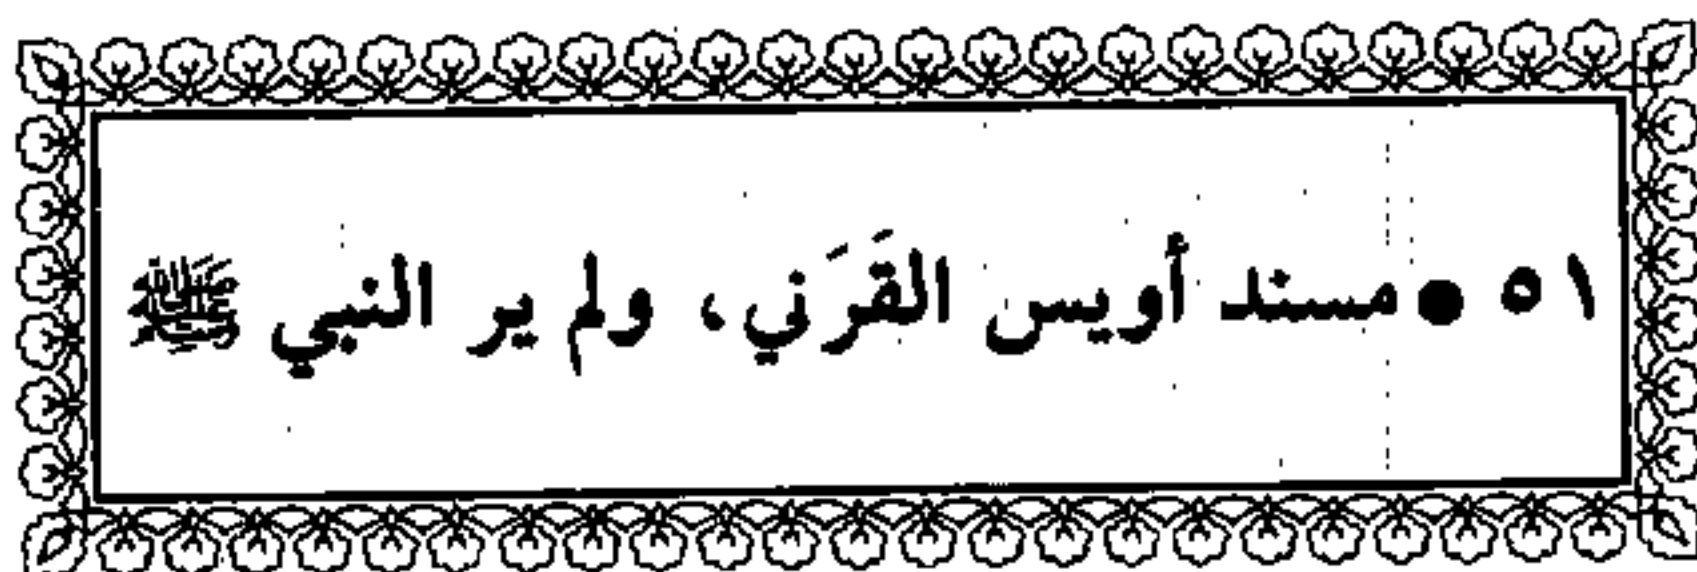 ٥١ ● مسند أويس القَرَني، ولم ير النبي ﷺ